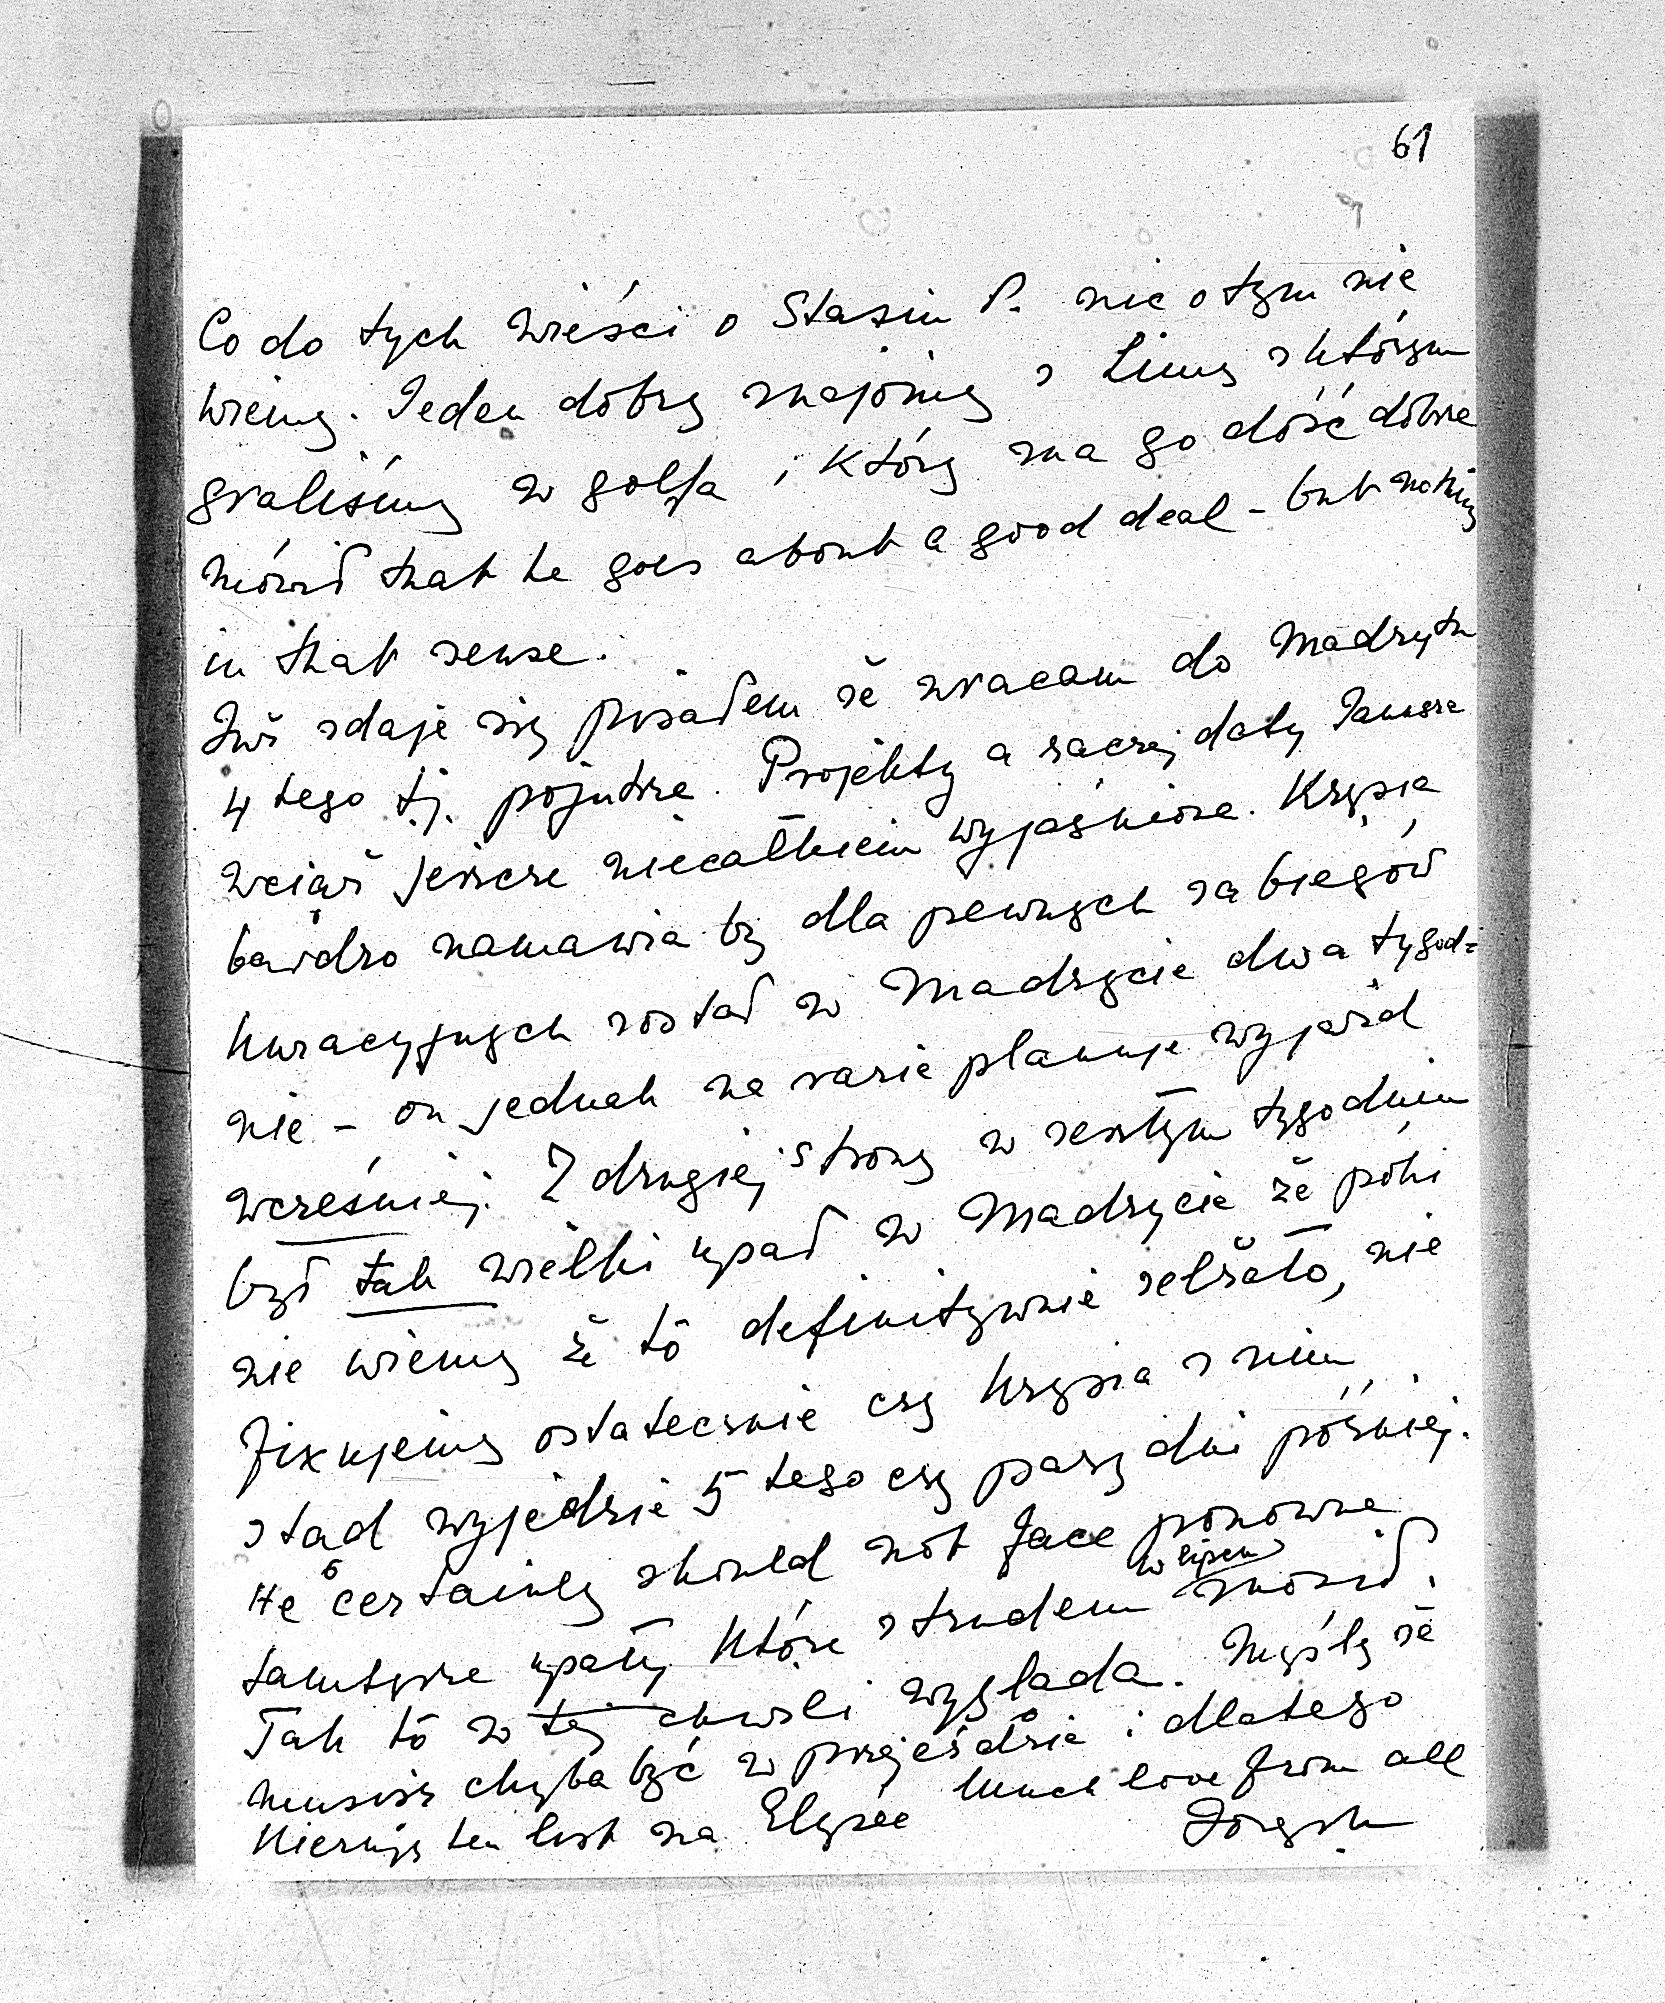 61
Co do tych wieści o Stasiu P. nic o tym nie
wiemy. Jeden dobry znajomy z Limy z którym
graliśmy w golfa i który zna go dość dobrze
mówił that he goes about a good deal – but nothing
in that sense.
Już zdaje się pisałem że wracam do Madrytu
4 tego tj. pojutrze. Projekty a raczej daty Janusza
wciąż jeszcze niecałkiem wyjaśnione. Krysia
bardzo namawia by dla pewnych zabiegów
kuracyjnych został w Madrycie dwa tygod=
nie – on jednak na razie planuje wyjazd
wcześniej. Z drugiej strony w zeszłym tygodniu
był tak wielki upał w Madrycie że póki
nie wiemy że to definitywnie zelżało, nie
fixujemy ostatecznie czy Krysia z nim
stąd wyjedzie 5 tego czy parę dni później.
He certainly should not face ponowne
w lipcu
tamtejsze upały które z trudem znosił.
Tak to w tej chwili wygląda. Myślę że
musisz chyba być w przejeździe i dlatego
kieruję ten list na Elysée much love from all